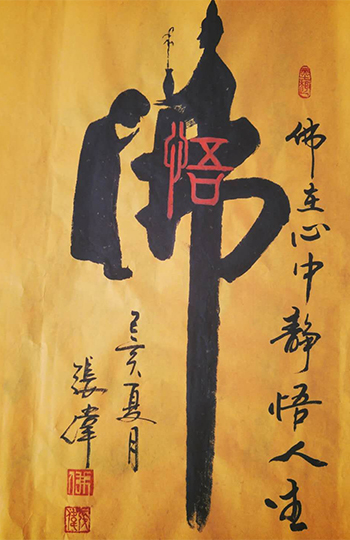 佛
悟
佛在心中静悟人生
己亥夏月
張偉